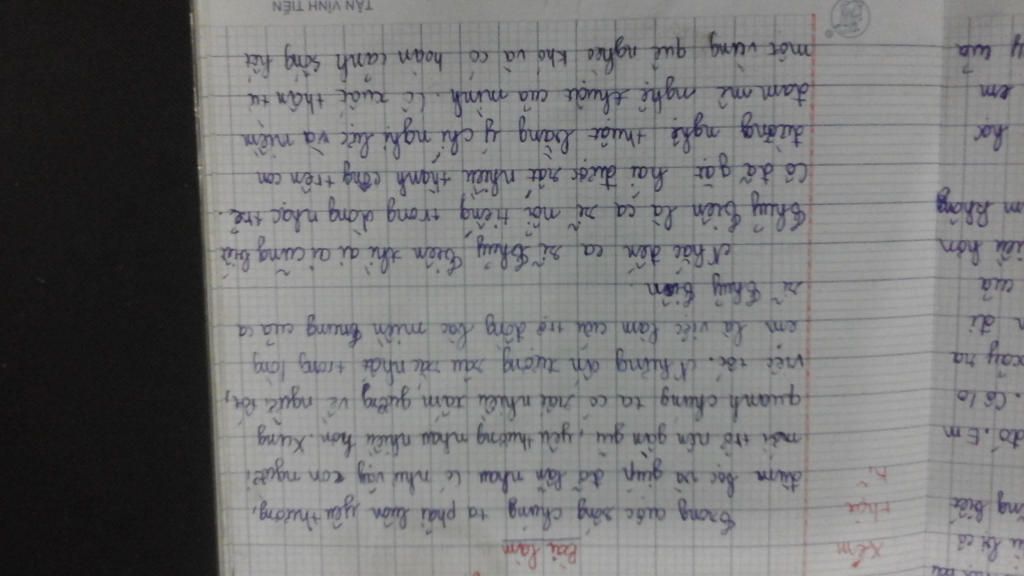 Bài làm
Trong cuộc sống chúng ta phải luôn yêu thương,
đùm bọc và giúp đỡ lẫn nhau có như vậy con người
mới trở nên gần gũi, yêu thương nhau nhiều hơn. Xung
quanh chúng ta có rất nhiều tấm gương về người tốt,
việc tốt. Nhưng ấn tượng sâu sắc nhất trong lòng
em là việc làm cứu trợ đồng bào miền Trung của ca
sĩ Thuỷ Tiên
Nhắc đến ca sĩ Thuỷ Tiên thì ai ai cũng biết
Thuỷ Tiên là ca sĩ nổi tiếng trong dòng nhạc trẻ.
Cô đã gặt hái được rất nhiều thành công trên con
đường nghệ thuật bằng ý chí nghị lực và niềm
đam mê nghệ thuật của mình. Cô xuất thân từ
một vùng quê nghèo khó và có hoàn cảnh sống hết
TÂN VĨNH TIẾN
đó. Em
. Cô lo
xảy ra
đi
của
hơn
m không
học
em